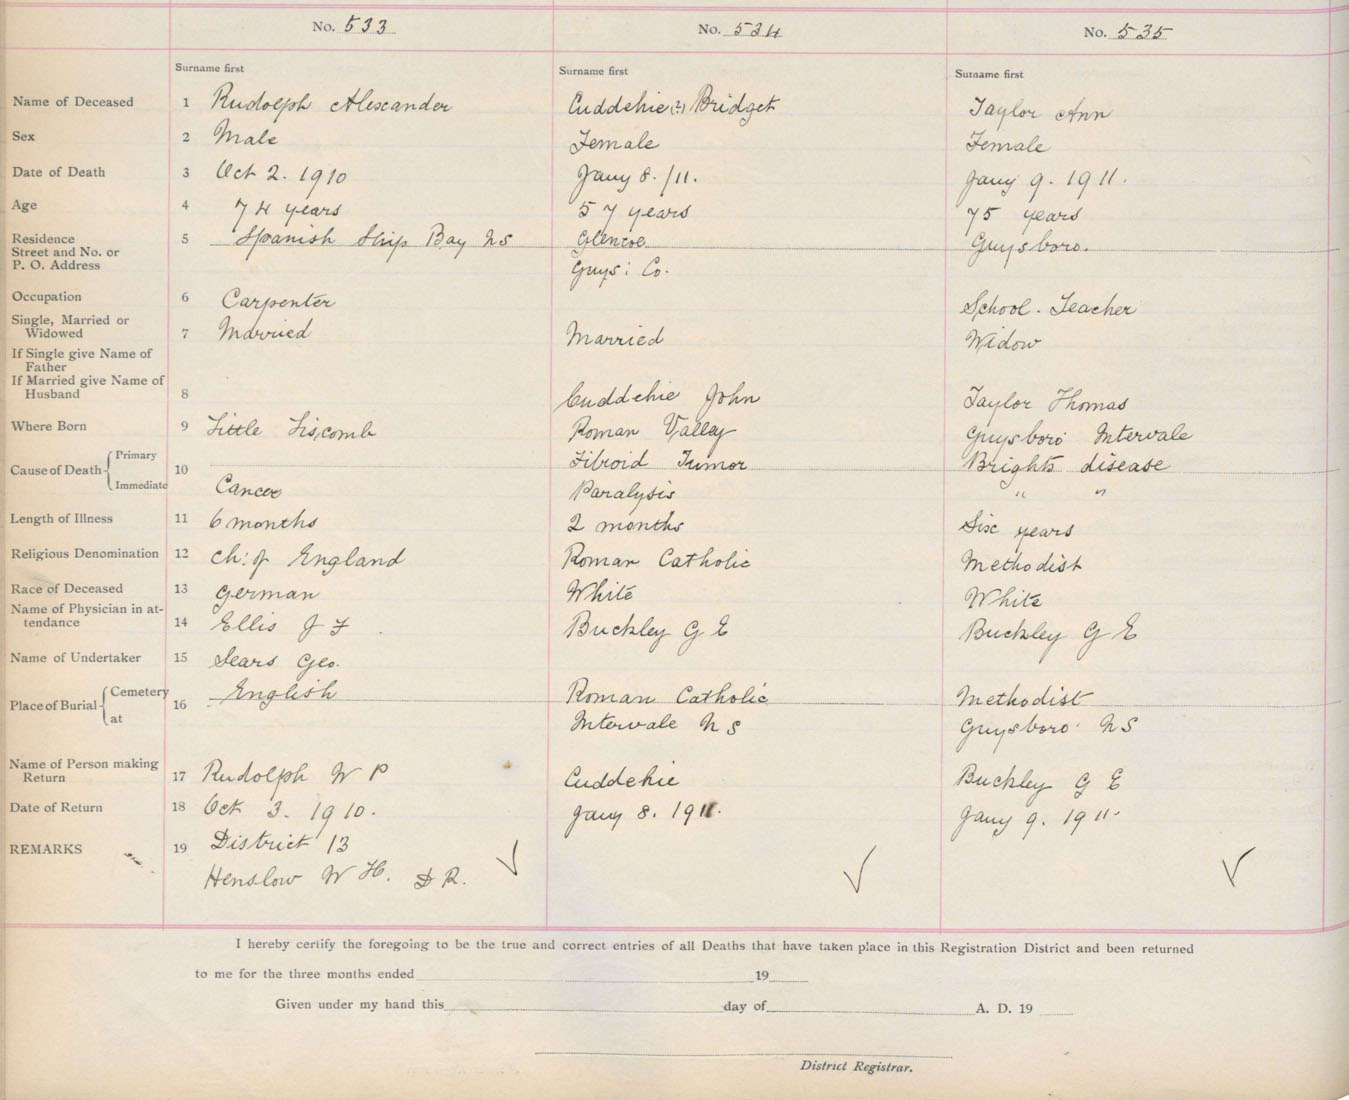 No. 533
No. 534
No. 535
Surname first
Surname first
Surname first
Name of Deceased 1 Rudolph Alexander Cuddehie (?) Bridget Taylor Ann
Sex 2 Male Female Female
Date of Death 3 Oct 2. 1910 Jany 8. /11. Jany 9. 1911.
Age 4 74 years 57 years 75 years
Residence 5 Spanish Ship Bay NS Glencoe Guysboro.
Street and No. or
P. O. Address Guys: Co.
Occupation 6 Carpenter School. Teacher
Single, Married or
Widowed 7 Married Married Widow
If Single give Name of
Father
If Married give Name of
Husband 8 Cuddehie John Taylor Thomas
Where Born 9 Little Liscomb Roman Valley Guysboro Intervale
Cause of Death 10 Primary Fibroid Tumor Brights disease
Immediate Cancer Paralysis " "
Length of Illness 11 6 months 2 months Six years
Religious Denomination 12 Ch: of England Roman Catholic Methodist
Race of Deceased 13 German White White
Name of Physician in at-
tendance 14 Ellis J F Buckley G E Buckley G E
Name of Undertaker 15 Sears Geo.
Place of Burial 16 Cemetery English Roman Catholic Methodist
at Intervale N S Guysboro N S
Name of Person making
Return 17 Rudolph W P Cuddehie Buckley G E
Date of Return 18 Oct 3. 1910. Jany 8. 1911. Jany 9. 1911.
REMARKS 19 District 13
Henslow W H. D R.
I hereby certify the foregoing to be the true and correct entries of all Deaths that have taken place in this Registration District and been returned
to me for the three months ended 19
Given under my hand this day of A. D. 19
District Registrar.